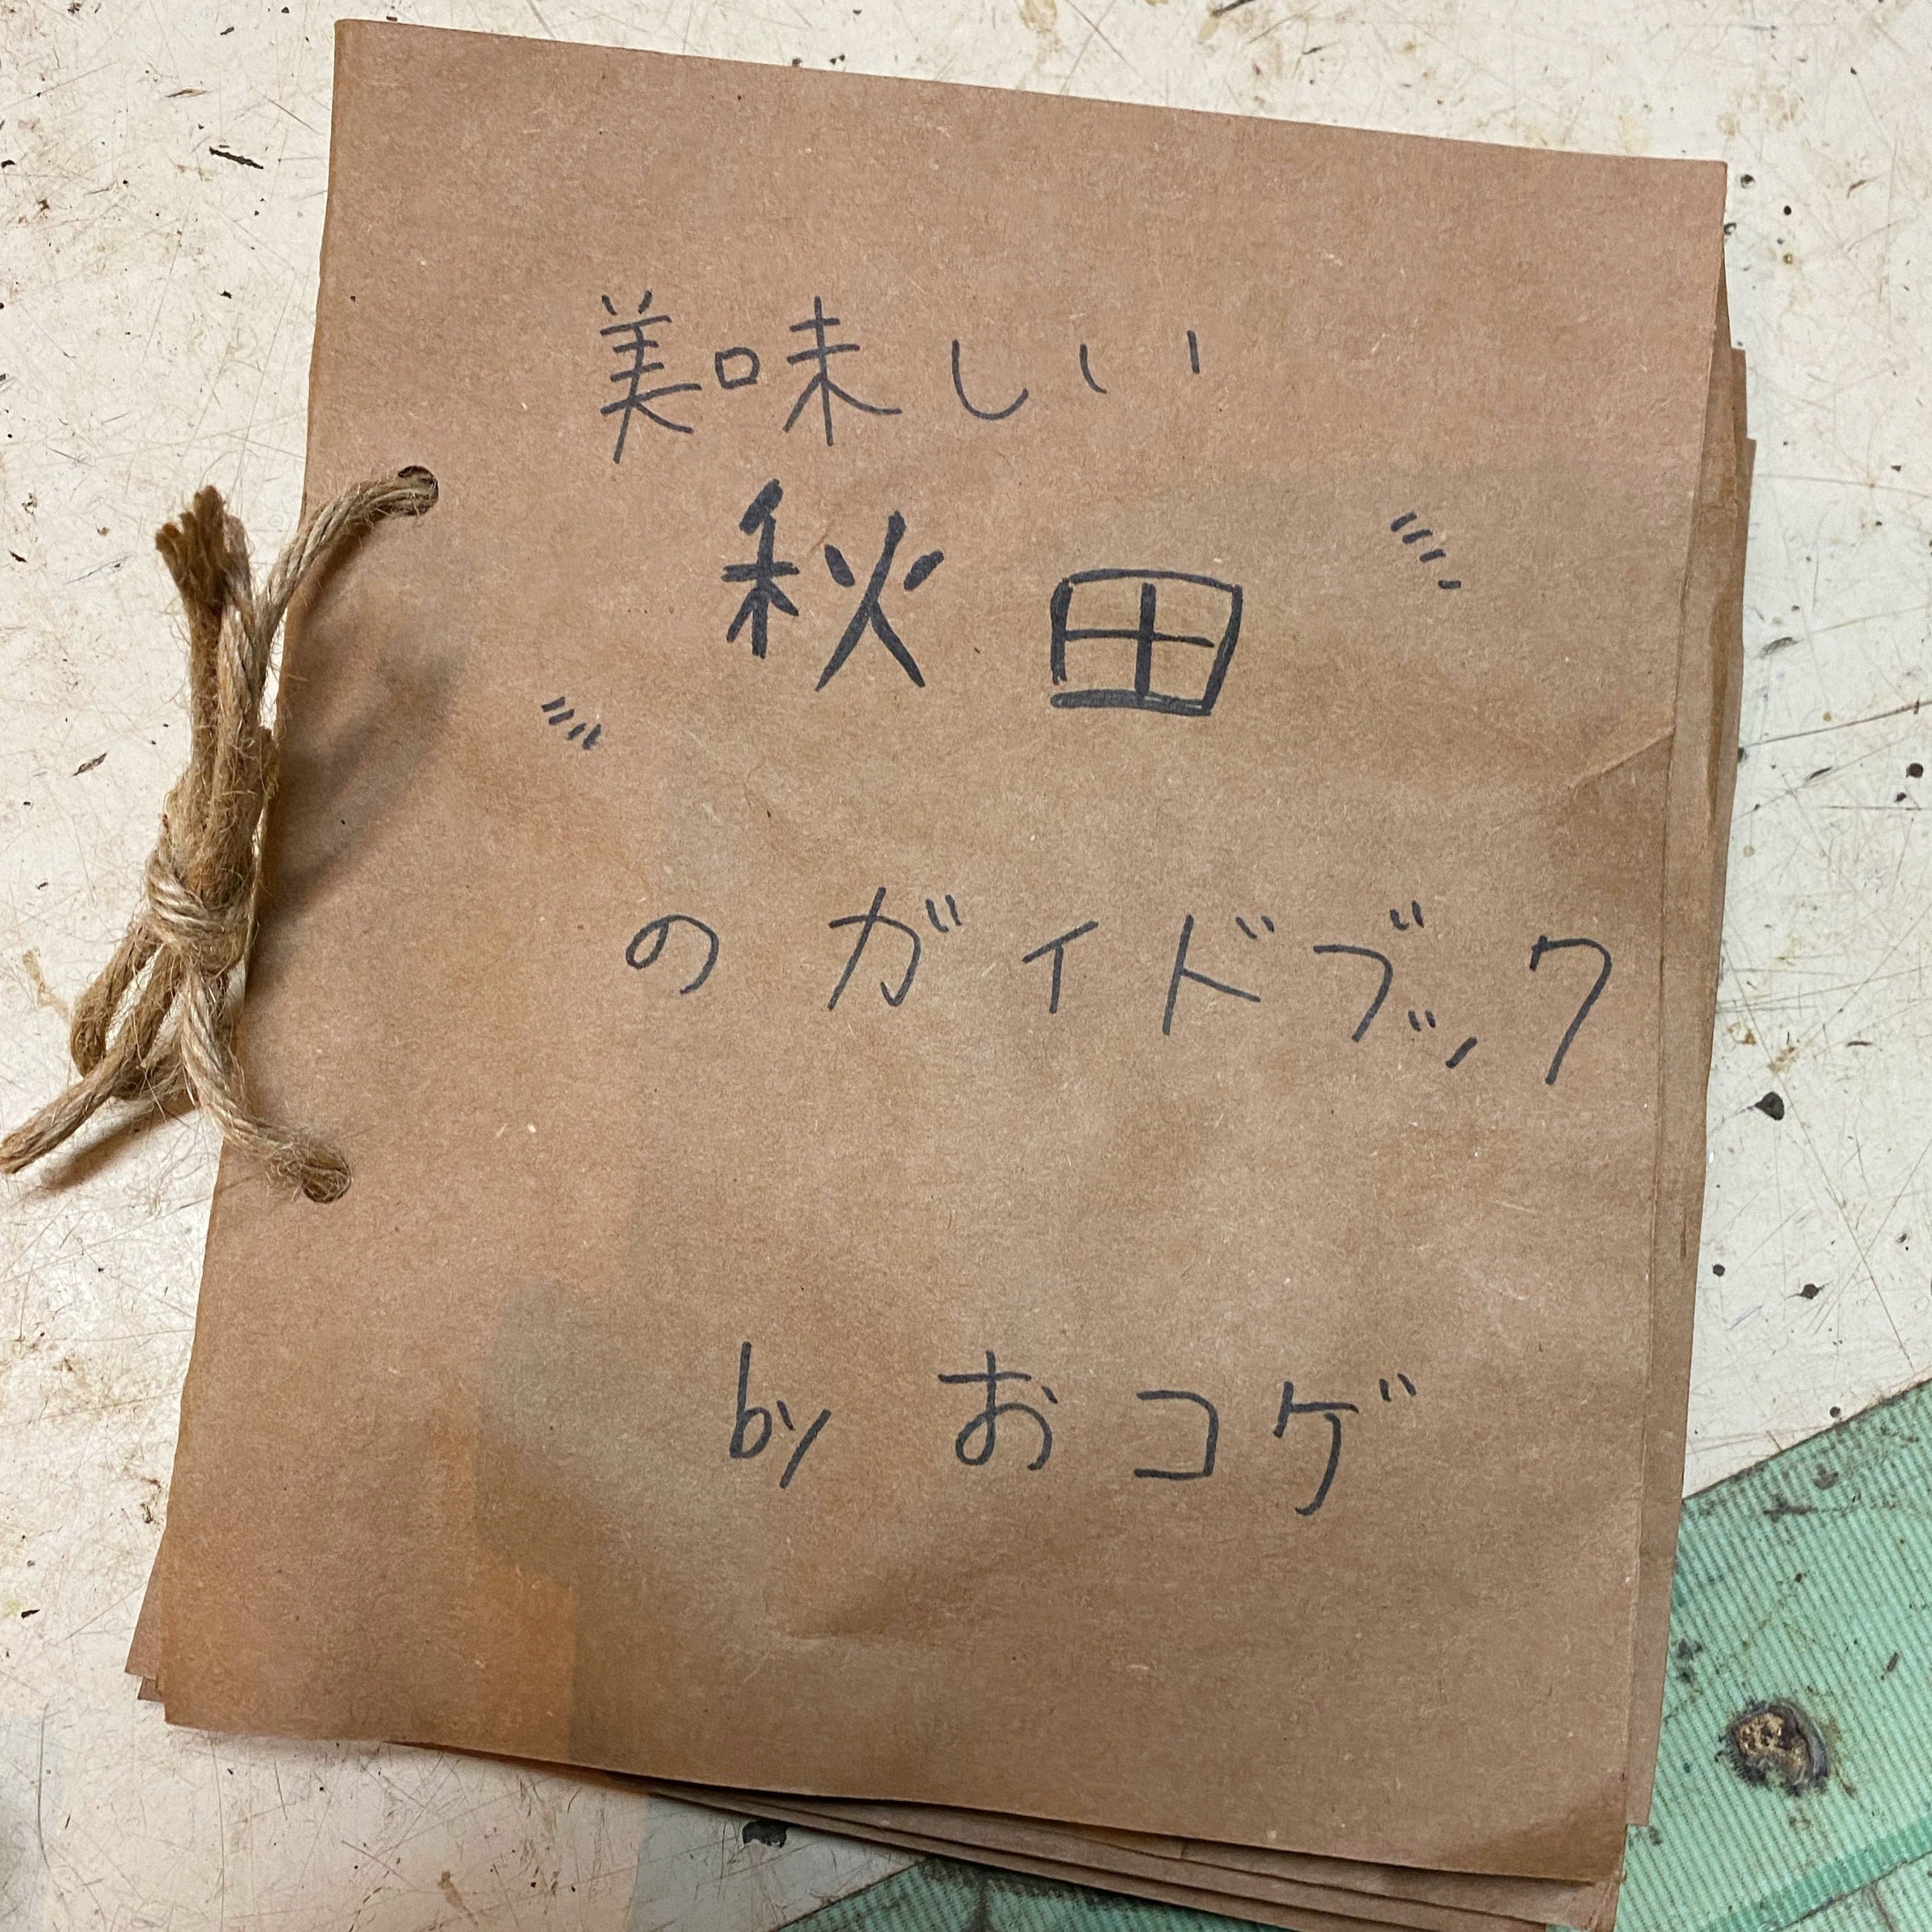 美味しい
秋田
のガイドブック
by おコゲ